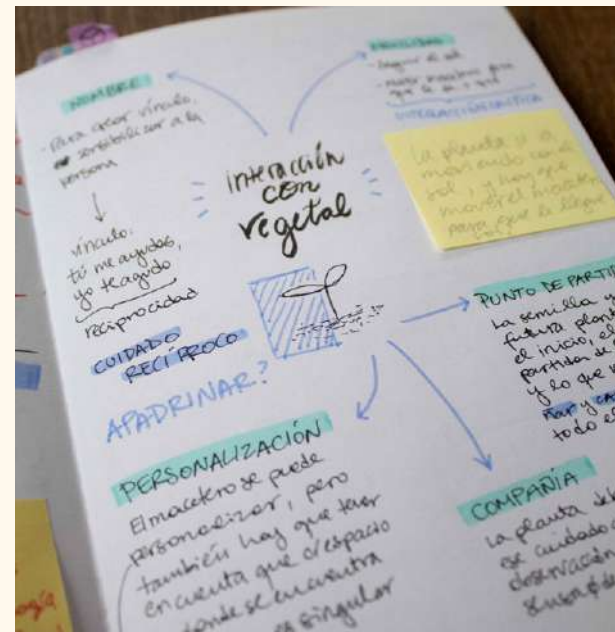 NOMBRE
- Para crear vínculo,
sensibilizar a la
persona
vínculo.
tú me ayudas,
yo te ayudo,
reciprocidad
CUIDADO
RECÍPROCO
APADRINAR?
interacción
con
vegetal
MOVILIDAD
- Seguir el sol
- mover macetero para
que le de
INTERACCIÓN CRÍTICA
La planta va
moviendo con el
sol, y hay que
mover el macetero
para que le llegue
PUNTO DE PARTID
La semilla
futura plant
el inicio, el
partida de
y lo que
y
todo e
PERSONALIZACIÓN
El macetero se puede
personalizar, pero
también hay que tener
en cuenta que el espacio
donde se encuentra
es singular
COMPAÑÍA
La planta de
ese cuidado
observación